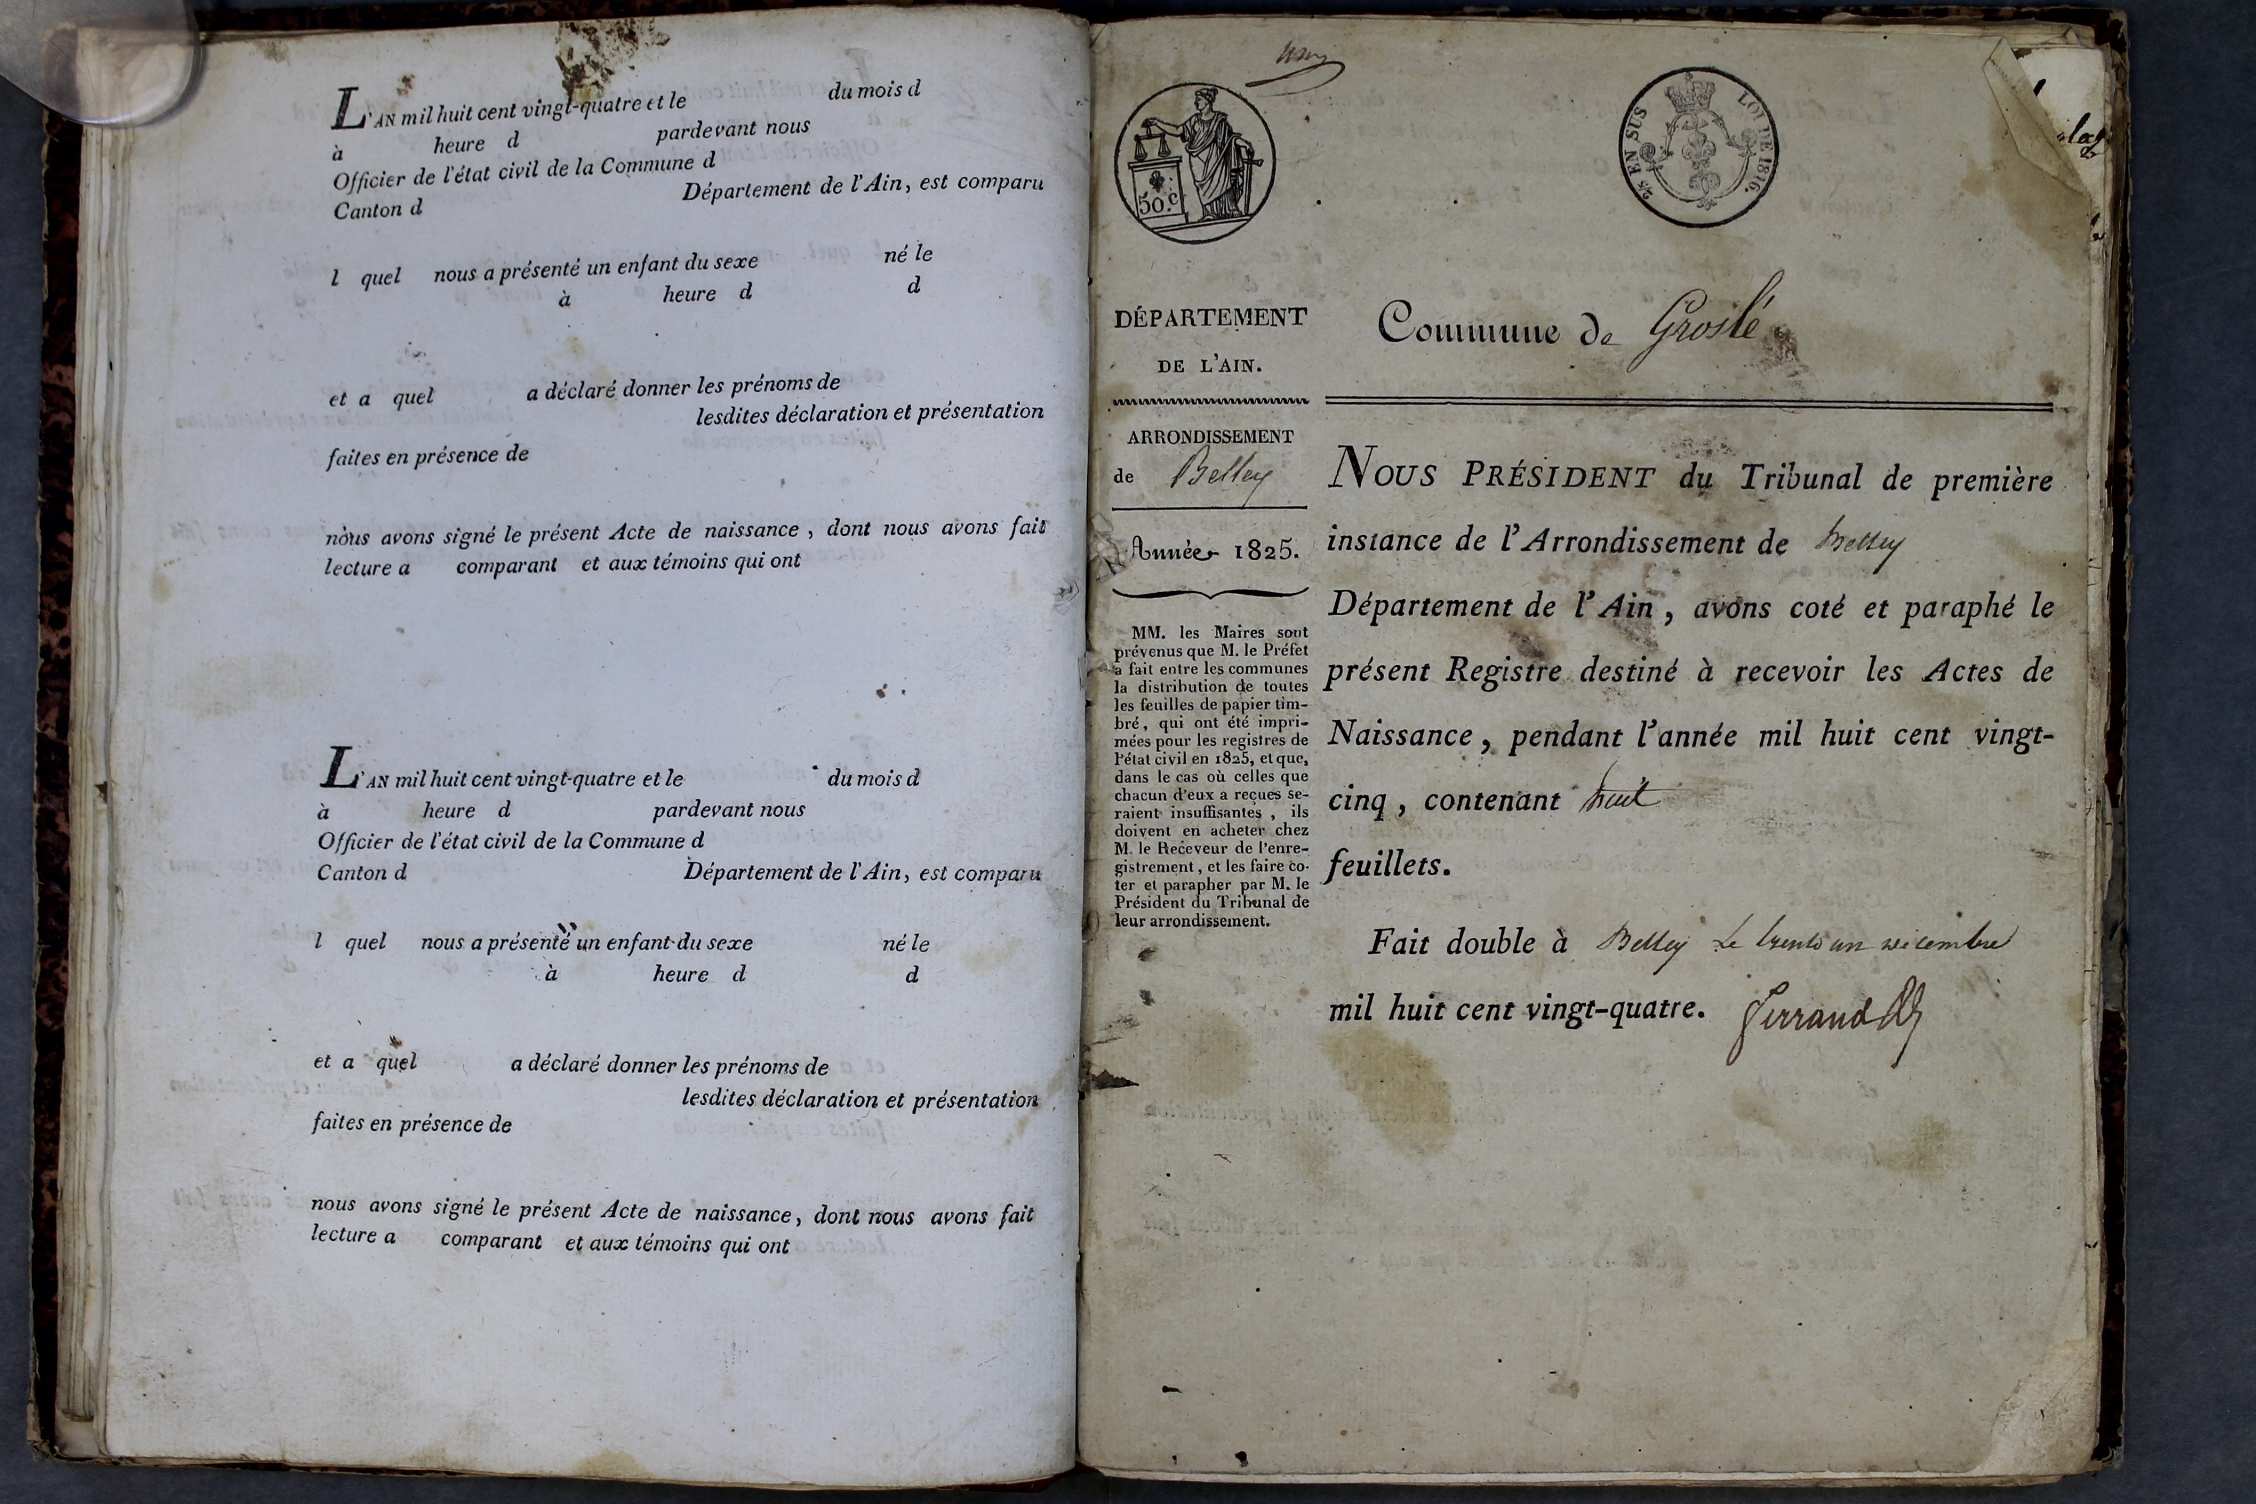 L'AN mil huit cent vingt-quatre et le du mois d
à heure d pardevant nous
Officier de l'état civil de la Commune d
Canton d Département de l'Ain, est comparu
l quel nous a présenté un enfant du sexe né le
à heure d d
et a quel a déclaré donner les prénoms de
lesdites déclaration et présentation
faites en présence de
nous avons signé le présent Acte de naissance, dont nous avons fait
lecture a comparant et aux témoins qui ont
L'AN mil huit cent vingt-quatre et le du mois d
à heure d pardevant nous
Officier de l'état civil de la Commune d
Canton d Département de l'Ain, est comparu
l quel nous a présenté un enfant du sexe né le
à heure d d
et a quel a déclaré donner les prénoms de
lesdites déclaration et présentation
faites en présence de
nous avons signé le présent Acte de naissance, dont nous avons fait
lecture a comparant et aux témoins qui ont
50.c
EN SUS LOI DE 1816.
DÉPARTEMENT
DE L'AIN.
ARRONDISSEMENT
de Belley
Année 1825.
MM. les Maires sont
prévenus que M. le Préfet
a fait entre les communes
la distribution de toutes
les feuilles de papier tim-
bré, qui ont été impri-
mées pour les registres de
l'état civil en 1825, et que,
dans le cas où celles que
chacun d'eux a reçues se-
raient insuffisantes, ils
doivent en acheter chez
M. le Receveur de l'enre-
gistrement, et les faire co-
ter et parapher par M. le
Président du Tribunal de
leur arrondissement.
Commune de Groslé
NOUS PRÉSIDENT du Tribunal de première
instance de l'Arrondissement de Belley
Département de l'Ain, avons coté et paraphé le
présent Registre destiné à recevoir les Actes de
Naissance, pendant l'année mil huit cent vingt-
cinq, contenant huit
feuillets.
Fait double à Belley Le trente un décembre
mil huit cent vingt-quatre. Ferrand